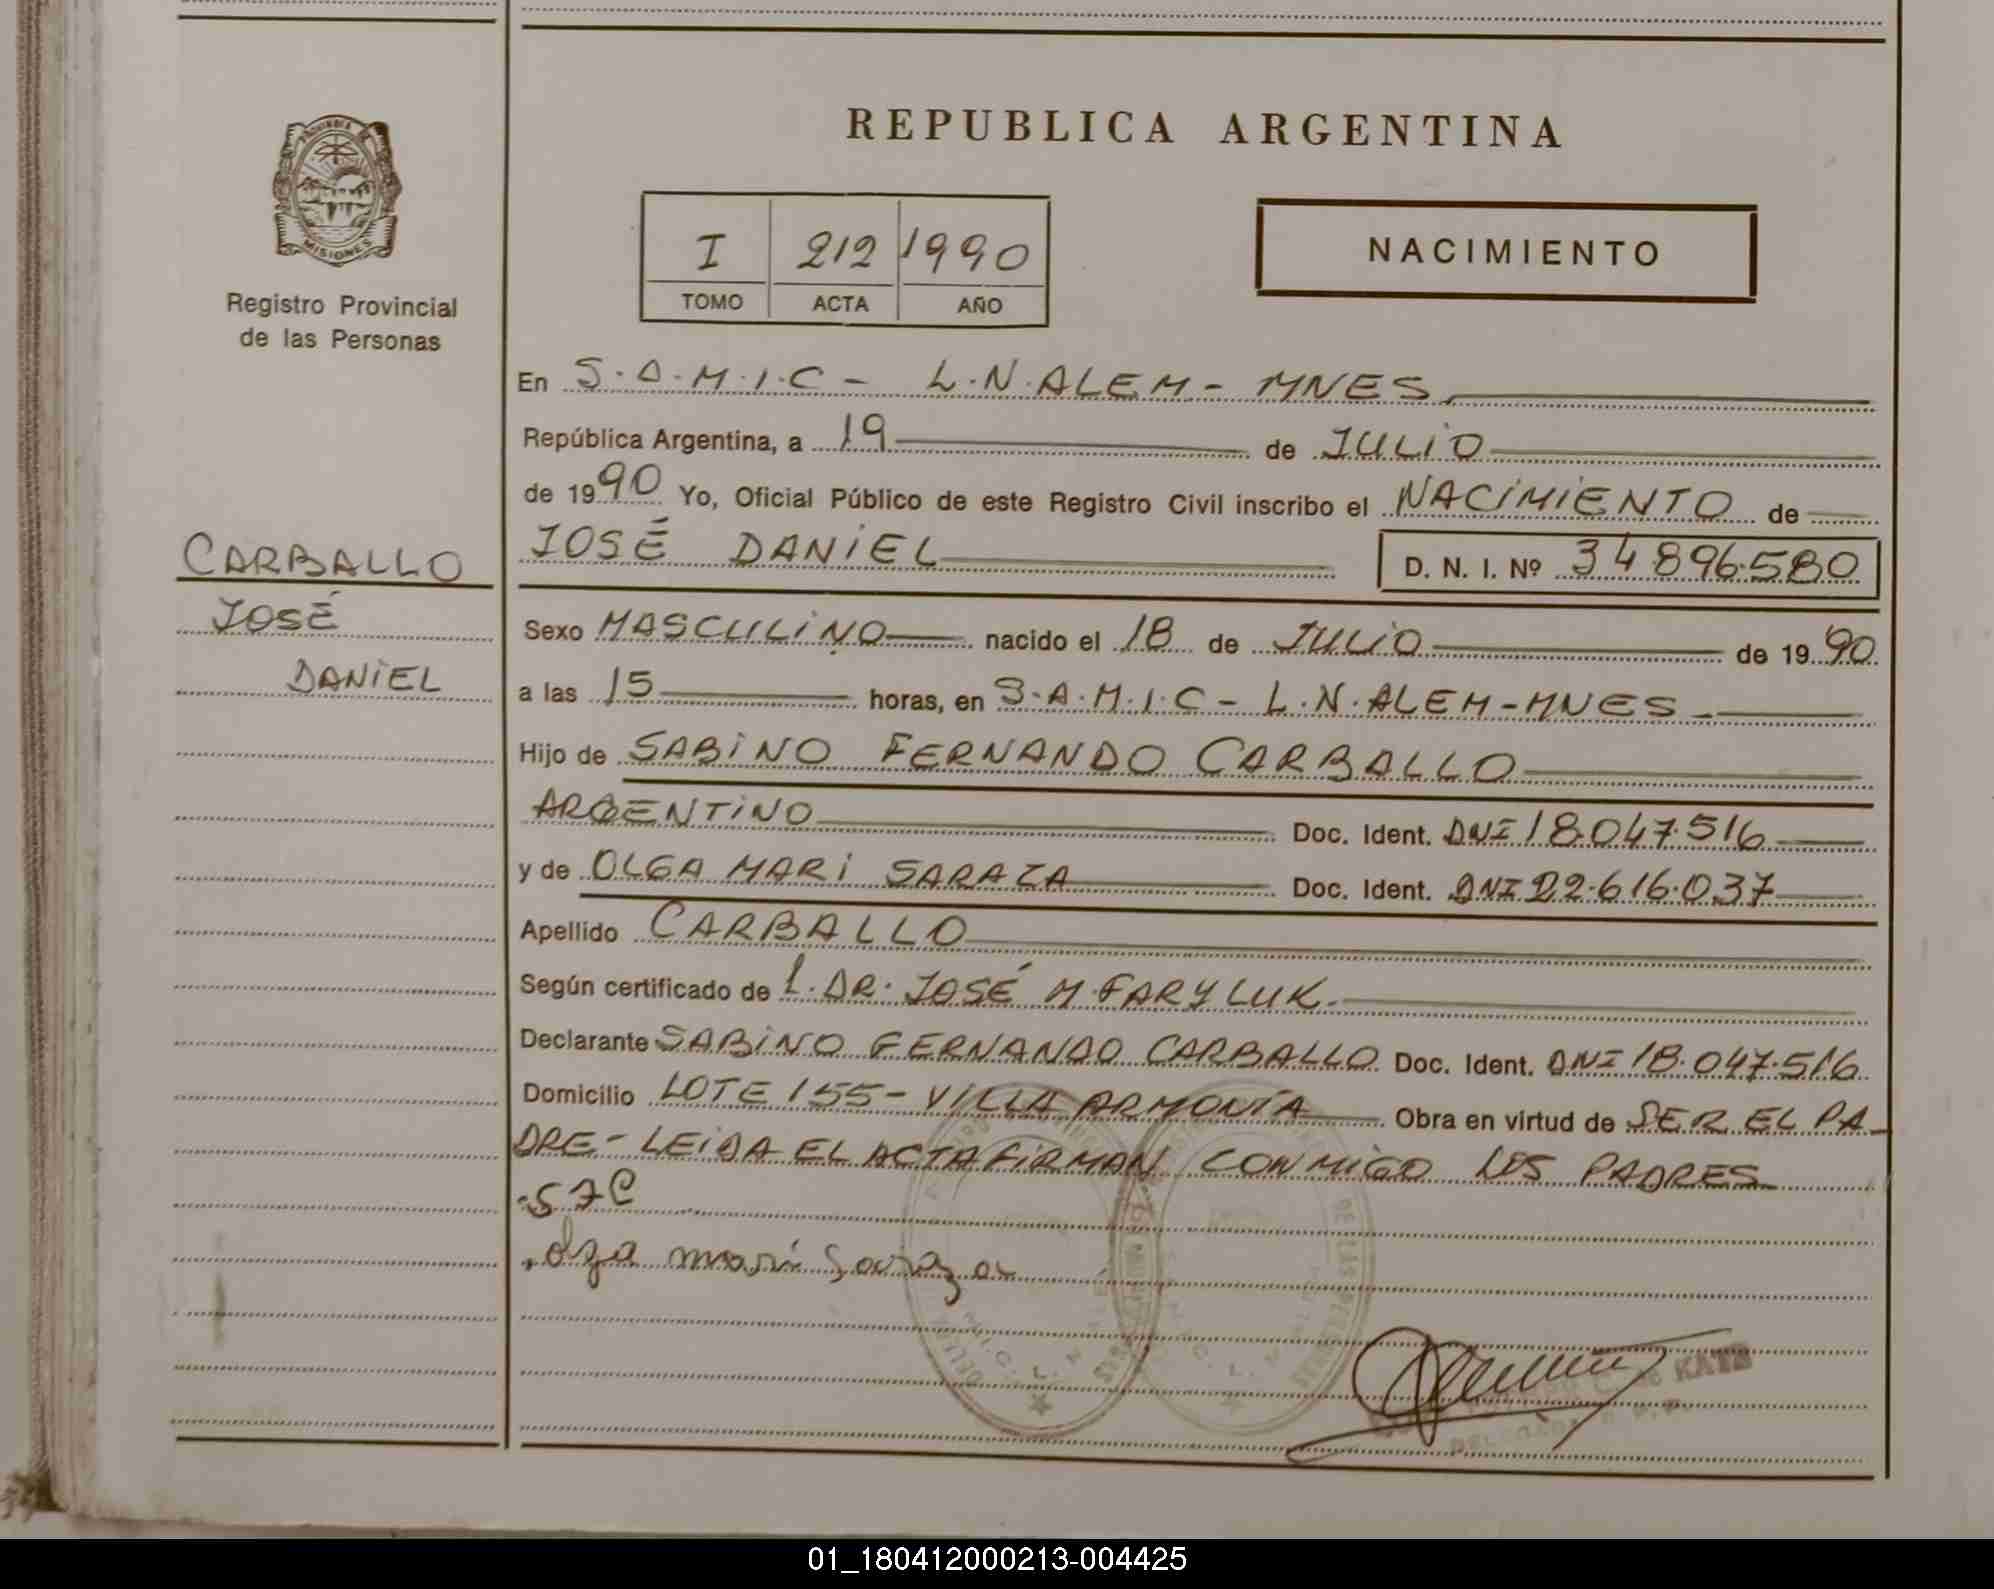 REPUBLICA ARGENTINA
PROVINCIA DE
MISIONES
Registro Provincial
de las Personas
I 212 1990
TOMO ACTA AÑO
NACIMIENTO
En S.A.M.I.C - L.N.ALEM - MNES.
República Argentina, a 19 de JULIO
de 1990 Yo, Oficial Público de este Registro Civil inscribo el NACIMIENTO de
CARBALLO
JOSÉ
DANIEL
JOSÉ DANIEL D. N. I. Nº 34896.580
Sexo MASCULINO nacido el 18 de JULIO de 1990
a las 15 horas, en S.A.M.I.C - L.N.ALEM-MNES -
Hijo de SABINO FERNANDO CARBALLO
ARGENTINO Doc. Ident. DNI 18.047.516
y de OLGA MARI SARAZA Doc. Ident. DNI 22.616.037
Apellido CARBALLO
Según certificado de L. DR. JOSÉ M. FARYLUK.
Declarante SABINO FERNANDO CARBALLO Doc. Ident. DNI 18.047.516
Domicilio LOTE 155 - VILLA ARMONÍA Obra en virtud de SER EL PA-
DRE - LEIDA EL ACTA FIRMAN CONMIGO LOS PADRES
olga mari Saraza
KATZ
01_180412000213-004425